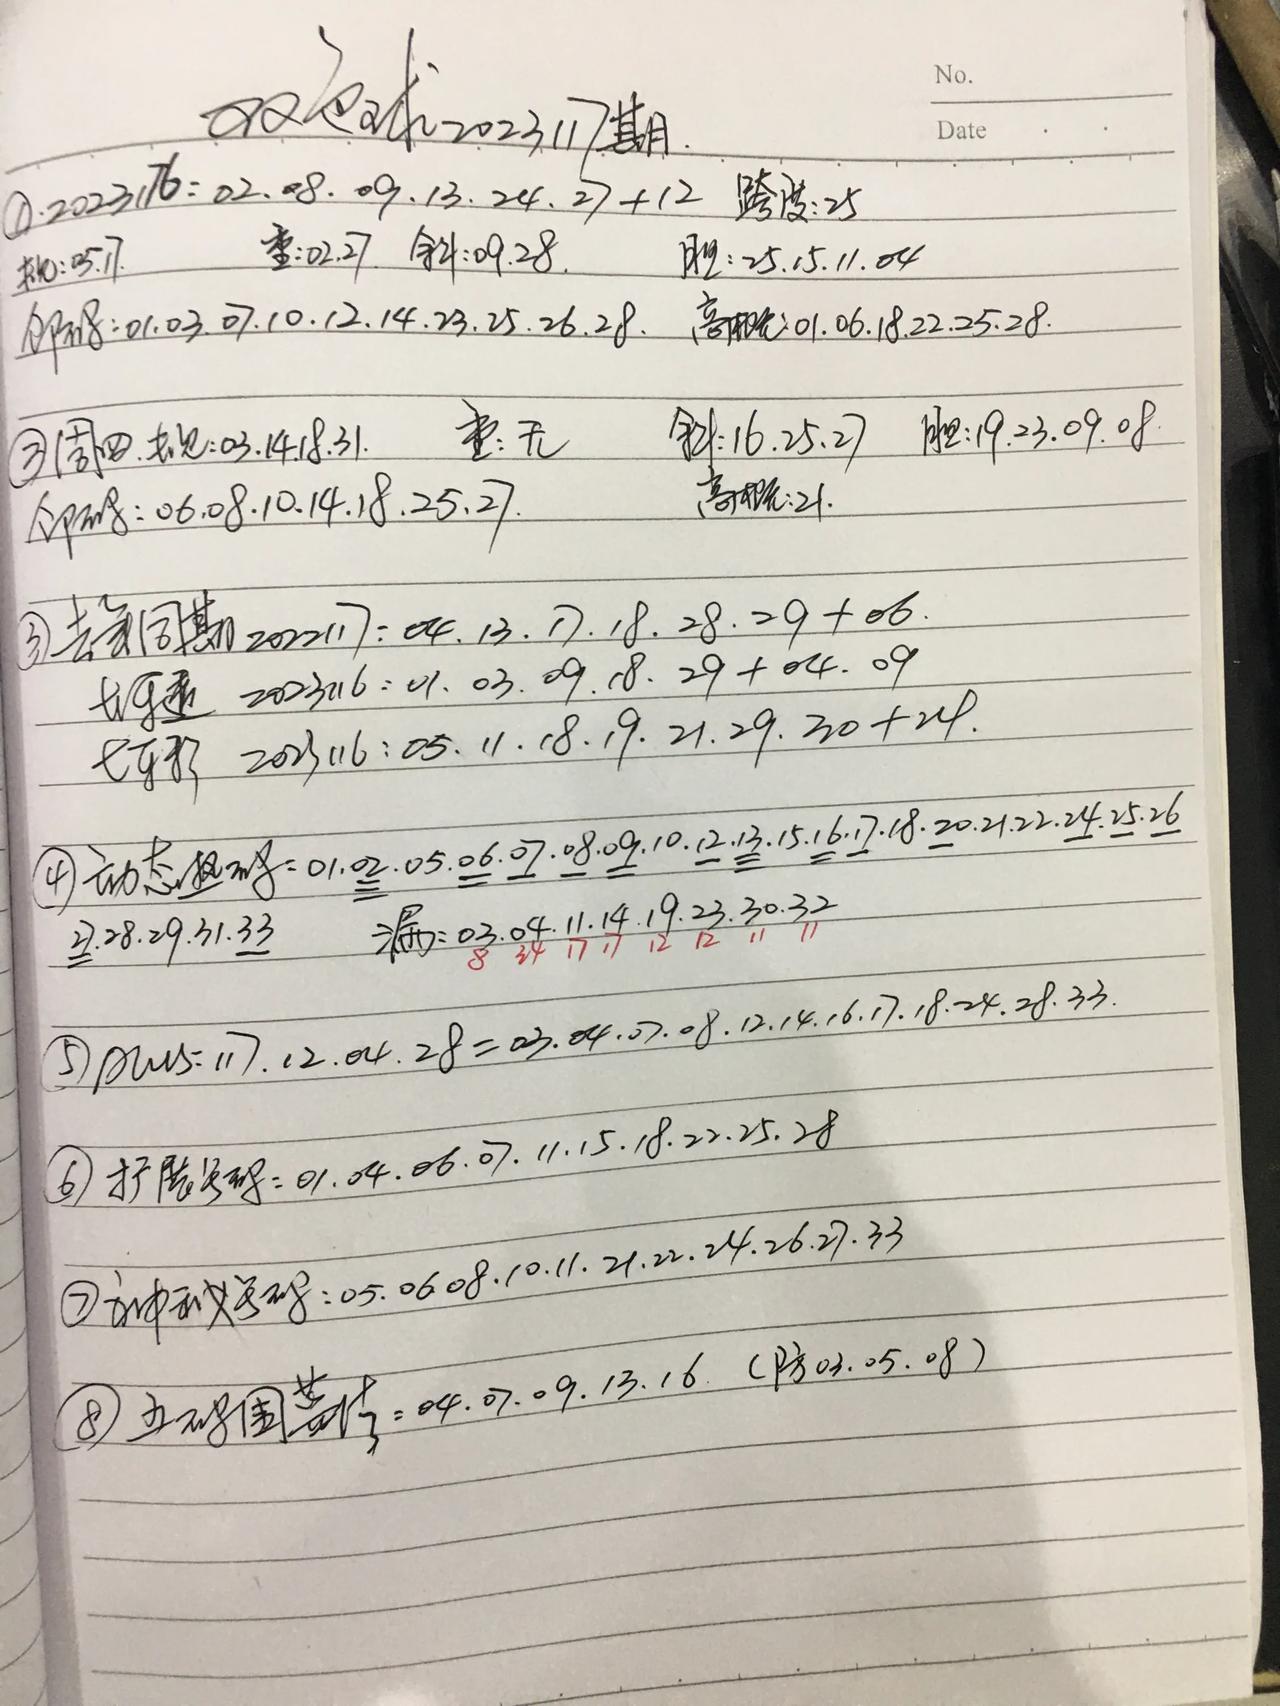 No.
Date
双色球2023117期.
①.2023116=02.08.09.13.24.27+12 跨度:25
规:05.17. 重:02.27 斜:09.28. 胆:25.15.11.04
邻码:01.03.07.10.12.14.23.25.26.28. 高概:01.06.18.22.25.28.
②周四. 规:03.14.18.31. 重:无 斜:16.25.27 胆:19.23.09.08.
邻码:06.08.10.14.18.25.27. 高概:21.
③去年同期2022117=04.13.17.18.28.29+06.
大乐透 2023116:01.03.09.18.29+04.09
七乐彩 2023116:05.11.18.19.21.29.30+24.
④动态热码=01.02.05.06.07.08.09.10.12.13.15.16.17.18.20.21.22.24.25.26
27.28.29.31.33 漏=03.04.11.14.19.23.30.32
8 34 17 17 12 12 11 11
⑤ 117.12.04.28=03.04.07.08.12.14.16.17.18.24.28.33.
⑥扩展号码=01.04.06.07.11.15.18.22.25.28
⑦神秘号码:05.06.08.10.11.21.22.24.26.27.33
⑧五码围蓝=04.07.09.13.16.(防03.05.08)